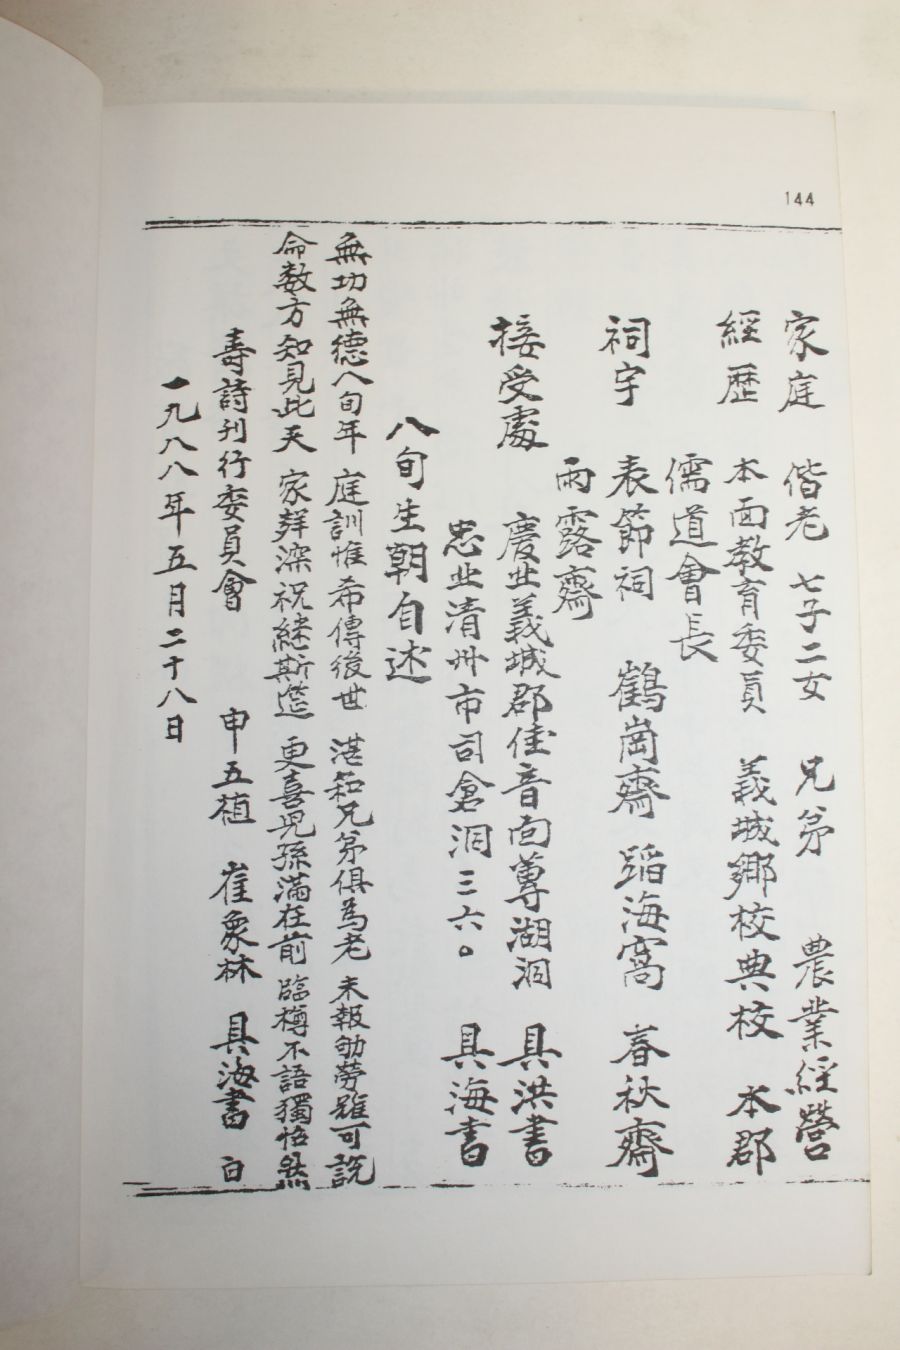 144
家庭 偕老 七子二女 兄弟 農業經營
經歷 本面教育委員 義城鄉校典校 本郡
儒道會長
祠宇 表節祠 鶴崗齋 蹈海窩 春秋齋
雨露齋
接受處 慶北義城郡佳音面尊湖洞 具洪書
忠北清州市司倉洞三六。 具海書
八旬生朝自述
無功無德八旬年 庭訓惟希傳後世 湛和兄弟俱為老 未報劬勞雖可說
命数方知見此天 家群深祝継斯筵 更喜児孫滿在前 臨樽不語獨悵然
壽詩刊行委員會 申五植 崔象林 具海書 白
一九八八年五月二十八日